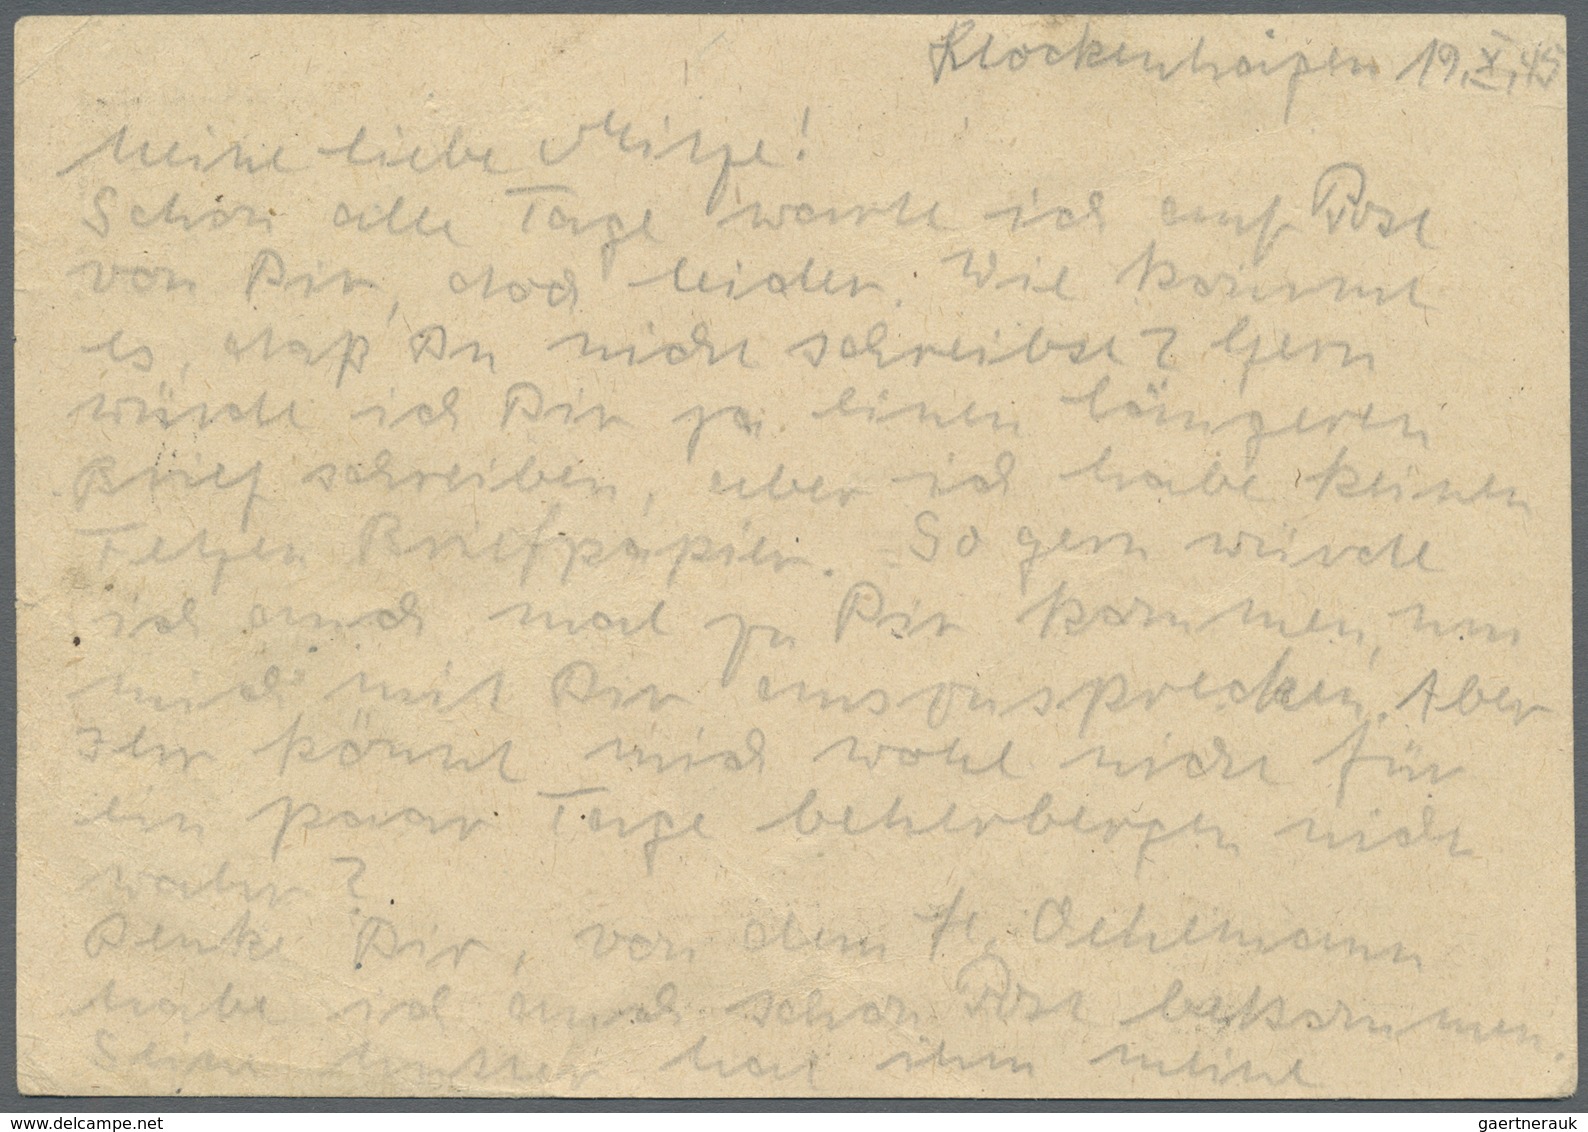 Klockenhagen 19.X.45
Meine liebe Mitze!
Schon alle Tage warte ich auf Post
von Dir, doch leider. Wie kommt
es, daß Du nicht schreibst? Gern
würde ich Dir ja einen längeren
Brief schreiben, aber ich habe keinen
Fetzen Briefpapier. So gern würde
ich auch mal zu Dir kommen, um
mich mit Dir auszusprechen. Aber
Ihr könnt mich wohl nicht für
ein paar Tage beherbergen nicht
wahr?
Denke Dir, von dem H. Oehlmann
habe ich auch schon Post bekommen.
Seine Mutter hat ihm meine
gaertnerauk / delcampe.net